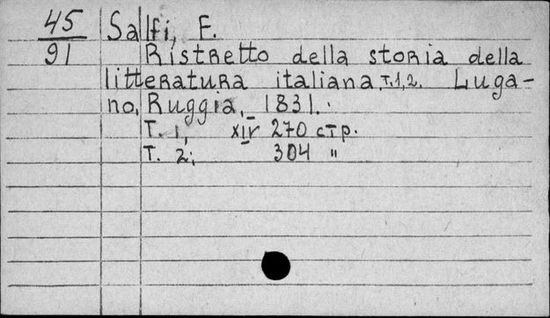 45 Salfi, F.
91 Ristretto della storia della
litteratura italiana, т.1,2. Luga-
no, Ruggia, 1831.
Т. 1, XIV 270 стр.
Т. 2; 304 "